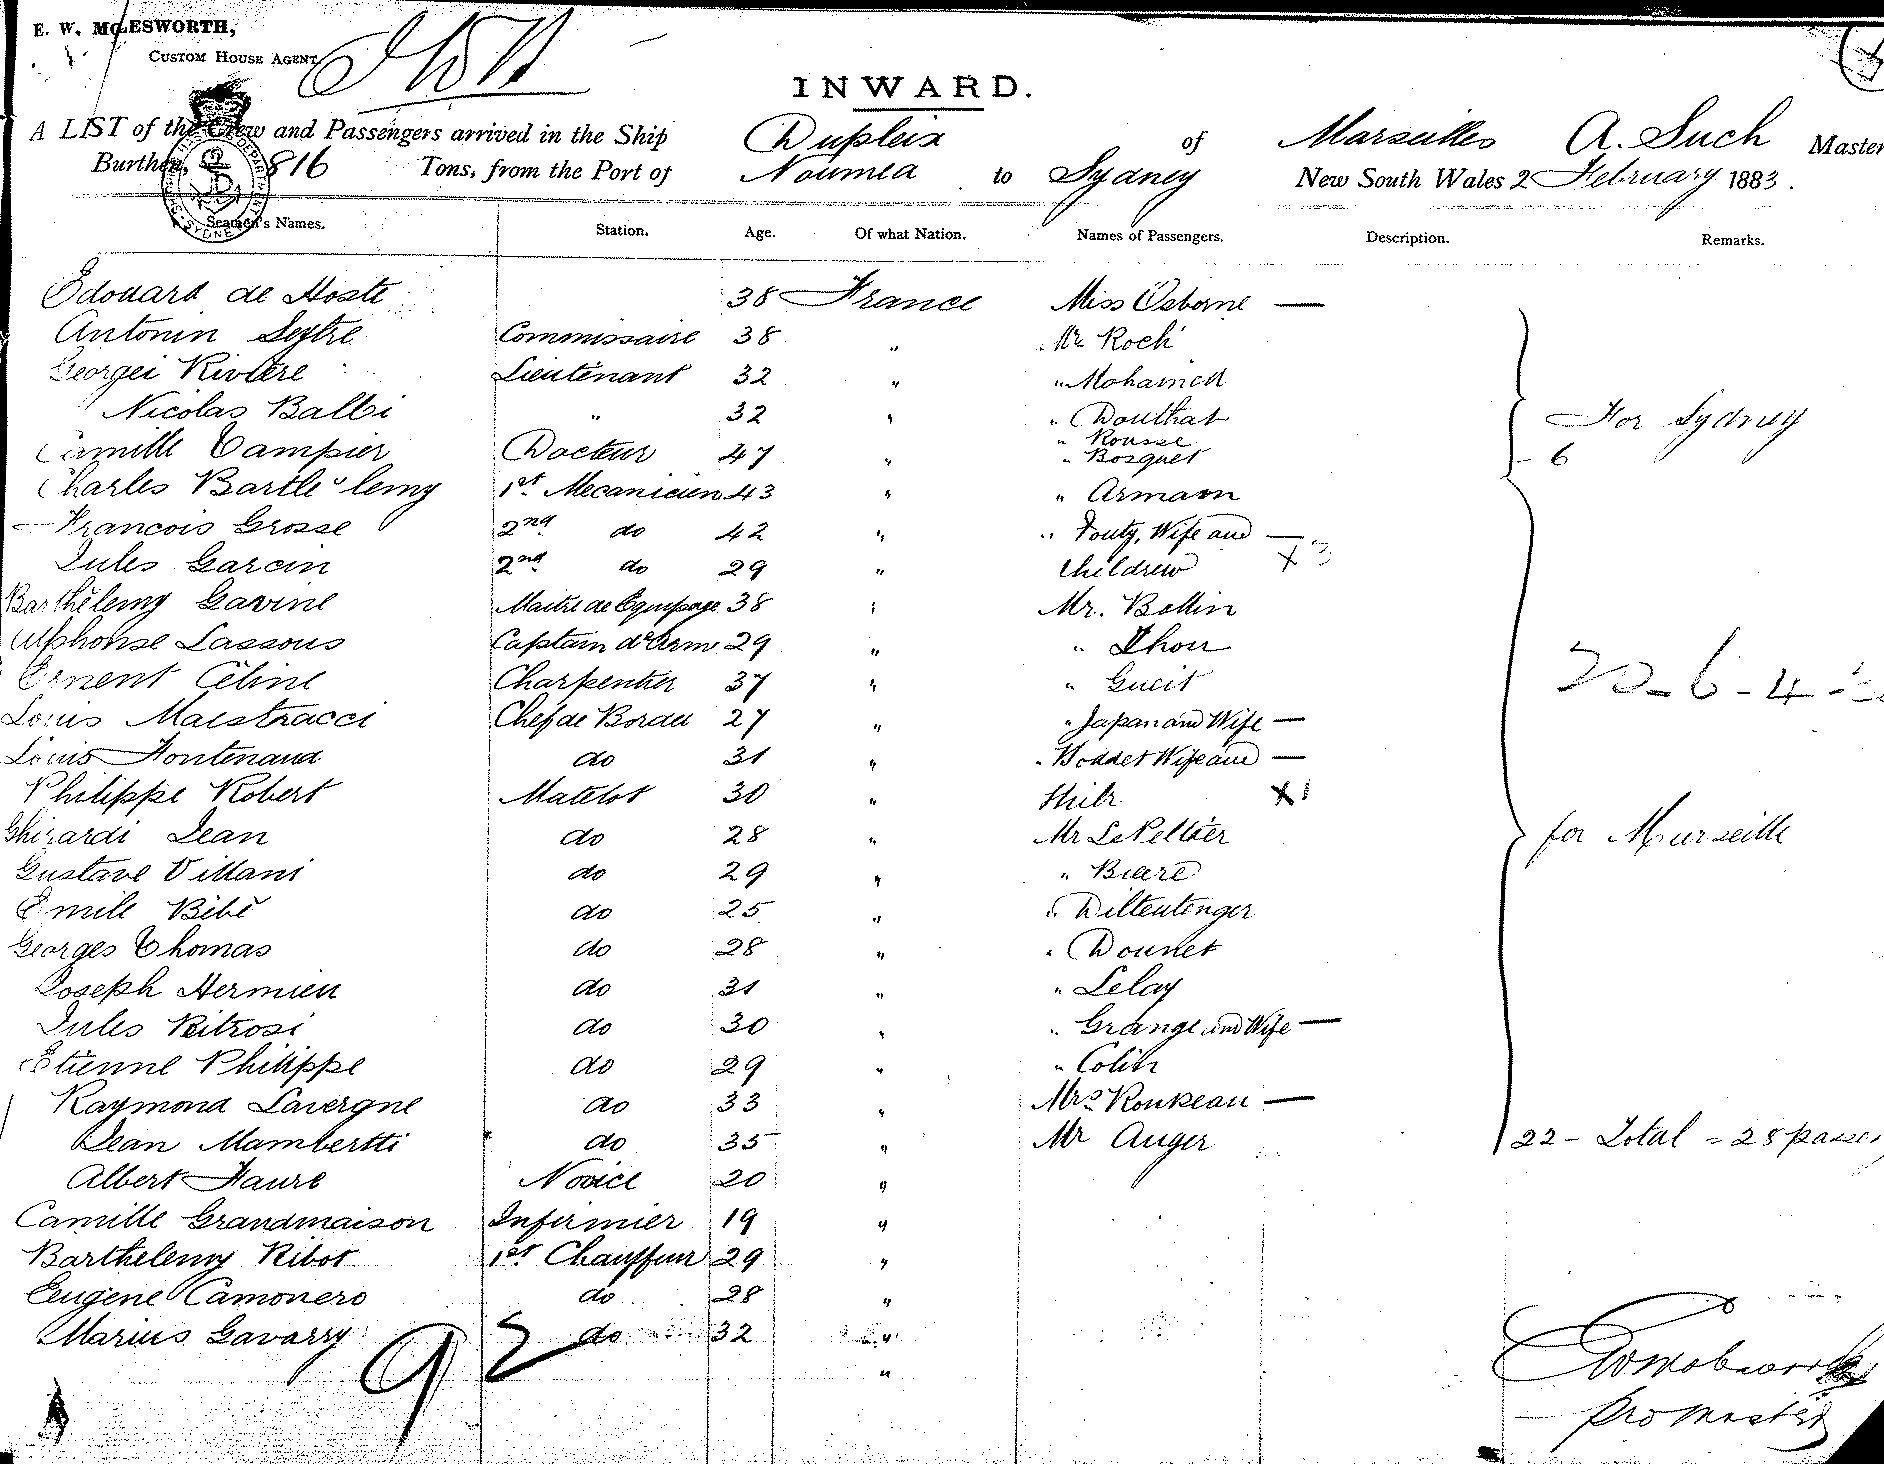 E. W. MOLESWORTH,
CUSTOM HOUSE AGENT
INWARD.
A LIST of the Crew and Passengers arrived in the Ship Dupleix of Marseilles A. Such Master
Burthen, 816 Tons, from the Port of Noumea to Sydney New South Wales 2 February 1883.
Seamen's Names. Station. Age. Of what Nation. Names of Passengers. Description. Remarks.
Edouard de Hoste 38 France Miss Osborne —
Antonin Seytre Commissaire 38 " Mr Roch
Georges Riviere Lieutenant 32 " " Mohamed
Nicolas Balbi " 32 " " Douthat For Sydney
" Rousse
Camille Tampier Docteur 47 " " Bosquet 6
Charles Barthelemy 1st Mecanicien 43 " " Armaon
Francois Grosse 2nd do 42 " " Fouty, Wife and —
Jules Garcin 2nd do 29 " Children X 3
Barthélemy Gavine Maitre de Equipage 38 " Mr. Bollin
Alphonse Lassous Captain d'Arm 29 " " Thou
Ernent Céline Charpentier 37 " " Gueit 20-6-4-
Louis Maestracci Chef de Bordee 27 " " Japan and Wife —
Louis Fontenaud do 31 " " Boddet Wife and —
Philippe Robert Matelot 30 " X1
Ghirardi Jean do 28 " Mr Le Peltier for Marseille
Gustave Villani do 29 " " Biere
Emile Bébé do 25 " " Diltentenger
Georges Thomas do 28 " " Dounet
Joseph Hermieu do 31 " " Lelay
Jules Pitrosi do 30 " " Grange and Wife —
Etienne Philippe do 29 " " Colin
Raymond Lavergne do 33 " Mrs Rouzeau —
Jean Mambertti do 35 " Mr Auger 22 - Total = 28 passe
Albert Faure Novice 20 "
Camille Grandmaison Infirmier 19 "
Barthelemy Ribot 1st Chauffeur 29 "
Eugene Camonero do 28 "
Marius Gavarry do 32 "
92 "
pro Master